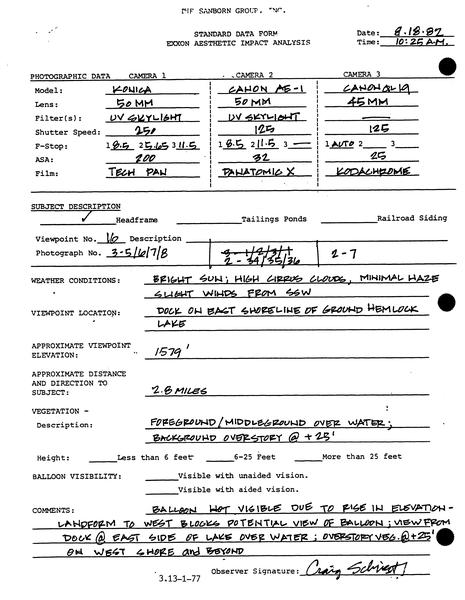 THE SANBORN GROUP, INC.
STANDARD DATA FORM Date: 8.18.82
EXXON AESTHETIC IMPACT ANALYSIS Time: 10:25 A.M.
PHOTOGRAPHIC DATA CAMERA 1 CAMERA 2 CAMERA 3
Model: KONICA CANON AE-1 CANON QL19
Lens: 50 MM 50 MM 45 MM
Filter(s): UV SKYLIGHT UV SKYLIGHT
Shutter Speed: 250 125 125
F-Stop: 1 8.5 2 5.65 3 11.5 1 8.5 2 11.5 3 — 1 AUTO 2 3
ASA: 200 32 25
Film: TECH PAN PANATOMIC X KODACHROME
SUBJECT DESCRIPTION
✓ Headframe Tailings Ponds Railroad Siding
Viewpoint No. 16 Description
Photograph No. 3-5/6/7/8 2-34/35/36 2-7
WEATHER CONDITIONS: BRIGHT SUN; HIGH CIRRUS CLOUDS, MINIMAL HAZE
SLIGHT WINDS FROM SSW
VIEWPOINT LOCATION: DOCK ON EAST SHORELINE OF GROUND HEMLOCK
LAKE
APPROXIMATE VIEWPOINT
ELEVATION: 1579'
APPROXIMATE DISTANCE
AND DIRECTION TO
SUBJECT: 2.8 MILES
VEGETATION -
Description: FOREGROUND/MIDDLEGROUND OVER WATER;
BACKGROUND OVERSTORY @ +25'
Height: Less than 6 feet 6-25 Feet More than 25 feet
BALLOON VISIBILITY: Visible with unaided vision.
Visible with aided vision.
COMMENTS: BALLOON NOT VISIBLE DUE TO RISE IN ELEVATION-
LANDFORM TO WEST BLOCKS POTENTIAL VIEW OF BALLOON; VIEW FROM
DOCK @ EAST SIDE OF LAKE OVER WATER; OVERSTORY VEG. @ +25'
ON WEST SHORE and BEYOND
Observer Signature: Craig
3.13-1-77